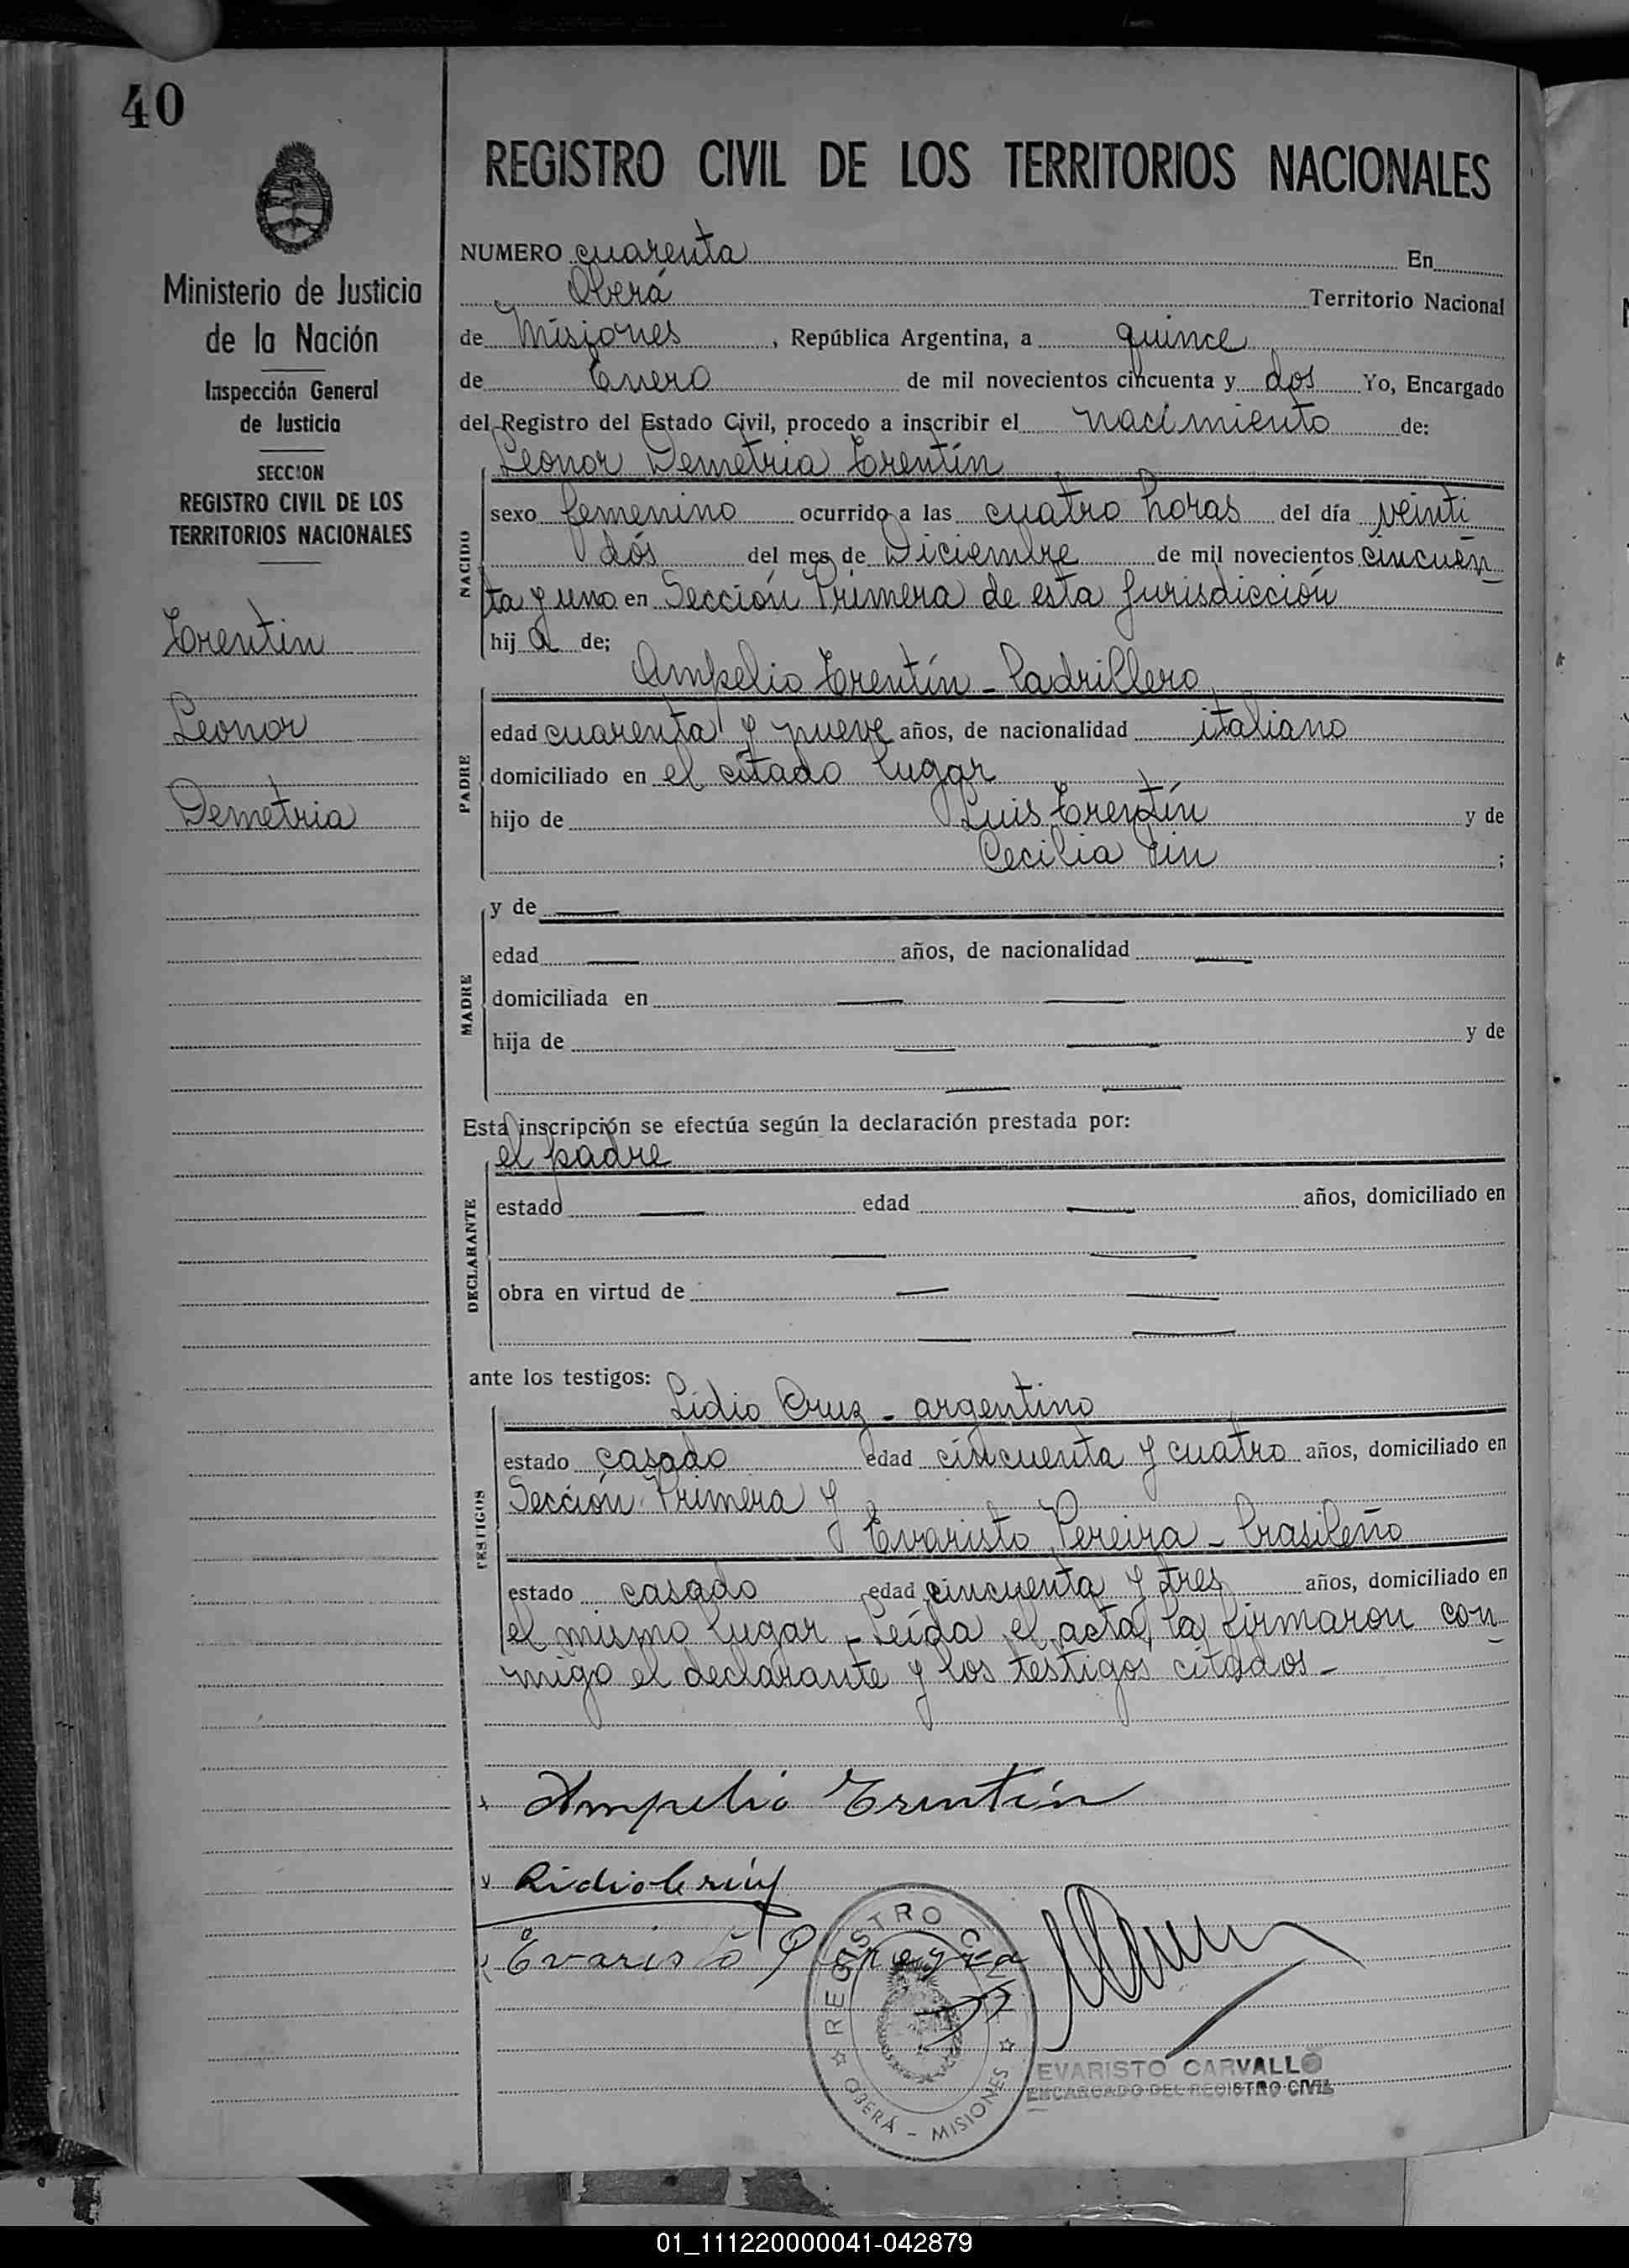 40
Ministerio de Justicia
de la Nación
Inspección General
de Justicia
SECCION
REGISTRO CIVIL DE LOS
TERRITORIOS NACIONALES
Trentin
Leonor
Demetria
REGISTRO CIVIL DE LOS TERRITORIOS NACIONALES
NUMERO cuarenta En
Oberá Territorio Nacional
de Misiones, República Argentina, a quince
de Enero de mil novecientos cincuenta y dos Yo, Encargado
del Registro del Estado Civil, procedo a inscribir el nacimiento de:
Leonor Demetria Trentín
NACIDO
sexo femenino ocurrido a las cuatro horas del día veinti
dós del mes de Diciembre de mil novecientos cincuen
ta y uno en Sección Primera de esta jurisdicción
hij a de;
Ampelio Trentín - Ladrillero
PADRE
edad cuarenta y nueve años, de nacionalidad italiano
domiciliado en el citado lugar
hijo de Luis Trentín y de
Cecilia Pin ;
MADRE
y de —
edad — años, de nacionalidad —
domiciliada en — —
hija de — — y de
— —
Esta inscripción se efectúa según la declaración prestada por:
el padre
DECLARANTE
estado — edad — años, domiciliado en
— —
obra en virtud de — —
— —
ante los testigos:
Lidio Cruz - argentino
TESTIGOS
estado casado edad cincuenta y cuatro años, domiciliado en
Sección Primera y
Evaristo Pereira - brasileño
estado casado edad cincuenta y tres años, domiciliado en
el mismo lugar - Leída el acta, la firmaron con
migo el declarante y los testigos citados -
Ampelio Trentín
Lidio Cruz
Evaristo
REGISTRO CIVIL
OBERÁ - MISIONES
EVARISTO CARVALLO
ENCARGADO DEL REGISTRO CIVIL
01_111220000041-042879